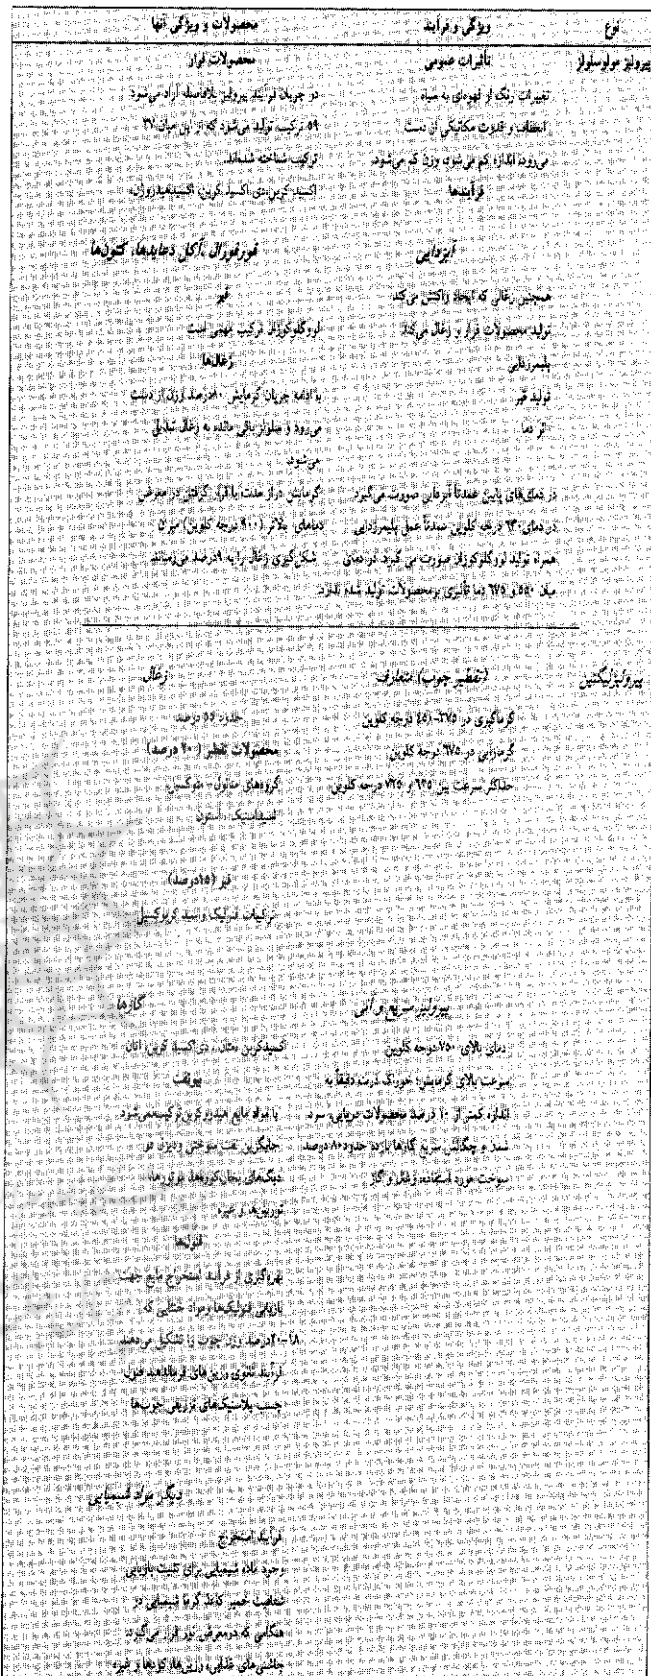 نوع ویژگی و فرآیند محصولات و ویژگی آنها
پیرولیز هولوسلولز تأثیرات عمومی محصولات فرار
تغییرات رنگ از قهوه‌ای به سیاه در جریان فرآیند پیرولیز بلافاصله آزاد می‌شود
انعطاف و قدرت مکانیکی از دست ۵۹ ترکیب تولید می‌شود که از این میان ۳۷
می‌رود، اندازه کم می‌شود، وزن کم می‌شود. ترکیب شناخته شده‌اند.
فرآیندها اکسید کربن، دی اکسید کربن،
آبزدایی فورفورال، آلدهایدها، کتون‌ها
همچنین زغالی که ایجاد واکنش می‌کند قیر
تولید محصولات فرار و زغال می‌کند لووگلوکوزان ترکیب مهمی است
پلیمرزدایی زغال‌ها
تولید قیر با ادامه جریان گرمایش ۸۰ درصد وزن از دست
اثر دما می‌رود و سلولز باقی مانده به زغال تبدیل
می‌شود.
در دماهای پایین عمدتاً آبزدایی صورت می‌گیرد گرمایش دراز مدت یا قرار گرفتن در معرض
در دمای ۶۳۰ درجه کلوین عمدتاً عمل پلیمرزدایی دماهای بالاتر (۹۰۰ درجه کلوین) میزان
همراه تولید لووگلوکوزان صورت می گیرد. در دمای شکل‌گیری زغال را به ۹ درصد می‌رساند
میان ۵۵۰ و ۶۷۵ دما تأثیری بر محصولات تولید شده ندارد.
پیرولیز لیگنین (تقطیر چوب) متعارف زغال
گرماگیری در ۳۷۵-۴۵۰ درجه کلوین حدود ۵۵ درصد
گرمازایی در ۶۷۵ درجه کلوین محصولات تقطیر (۲۰ درصد)
حداکثر سرعت بین ۶۲۵ و ۷۲۵ درجه کلوین گروه‌های متانول - متوکسیل،
اسیداستیک، استون
قیر (۱۵درصد)
ترکیبات فنولیک و اسید کربوکسیل
پیرولیز سریع و آنی گازها
دمای بالای ۷۵۰ درجه کلوین اکسیدکربن، متان، دی اکسید کربن، اتان
سرعت بالای گرمایش؛ خوراک ذرت، دقیقاً به بیونفت
اندازه کمتر از ۱۰ درصد محصولات جریانی، سرد با مواد مایع هیدروکربن ترکیب نمی‌شود
شدن و چگالش سریع گازها بازده حدود ۸۰ درصد جایگزین نفت سوختی و دیزل در
سوخت مورد استفاده، زغال و گاز دیگ‌های بخار، کوره‌ها، موتورها،
توربین‌ها و غیره
فنول‌ها
بهره‌گیری از فرآیند استخراج مایع جهت
بازیابی فنولیک‌ها و مواد خنثایی که
وزن چوب را تشکیل می‌دهند
فرآیند حاوی رزین‌های فرمالدهید فنول
چسب پلاستیک‌های تزریقی چوب‌ها
دیگر مواد شیمیایی
فرآیند استخراج
وجود ماده شیمیایی برای تثبیت بازیابی
شفافیت خمیر کاغذ گرما شیمیایی در
هنگامی که در معرض نور قرار می‌گیرد،
چاشنی‌های غذایی، رزین‌ها، کودها و غیره